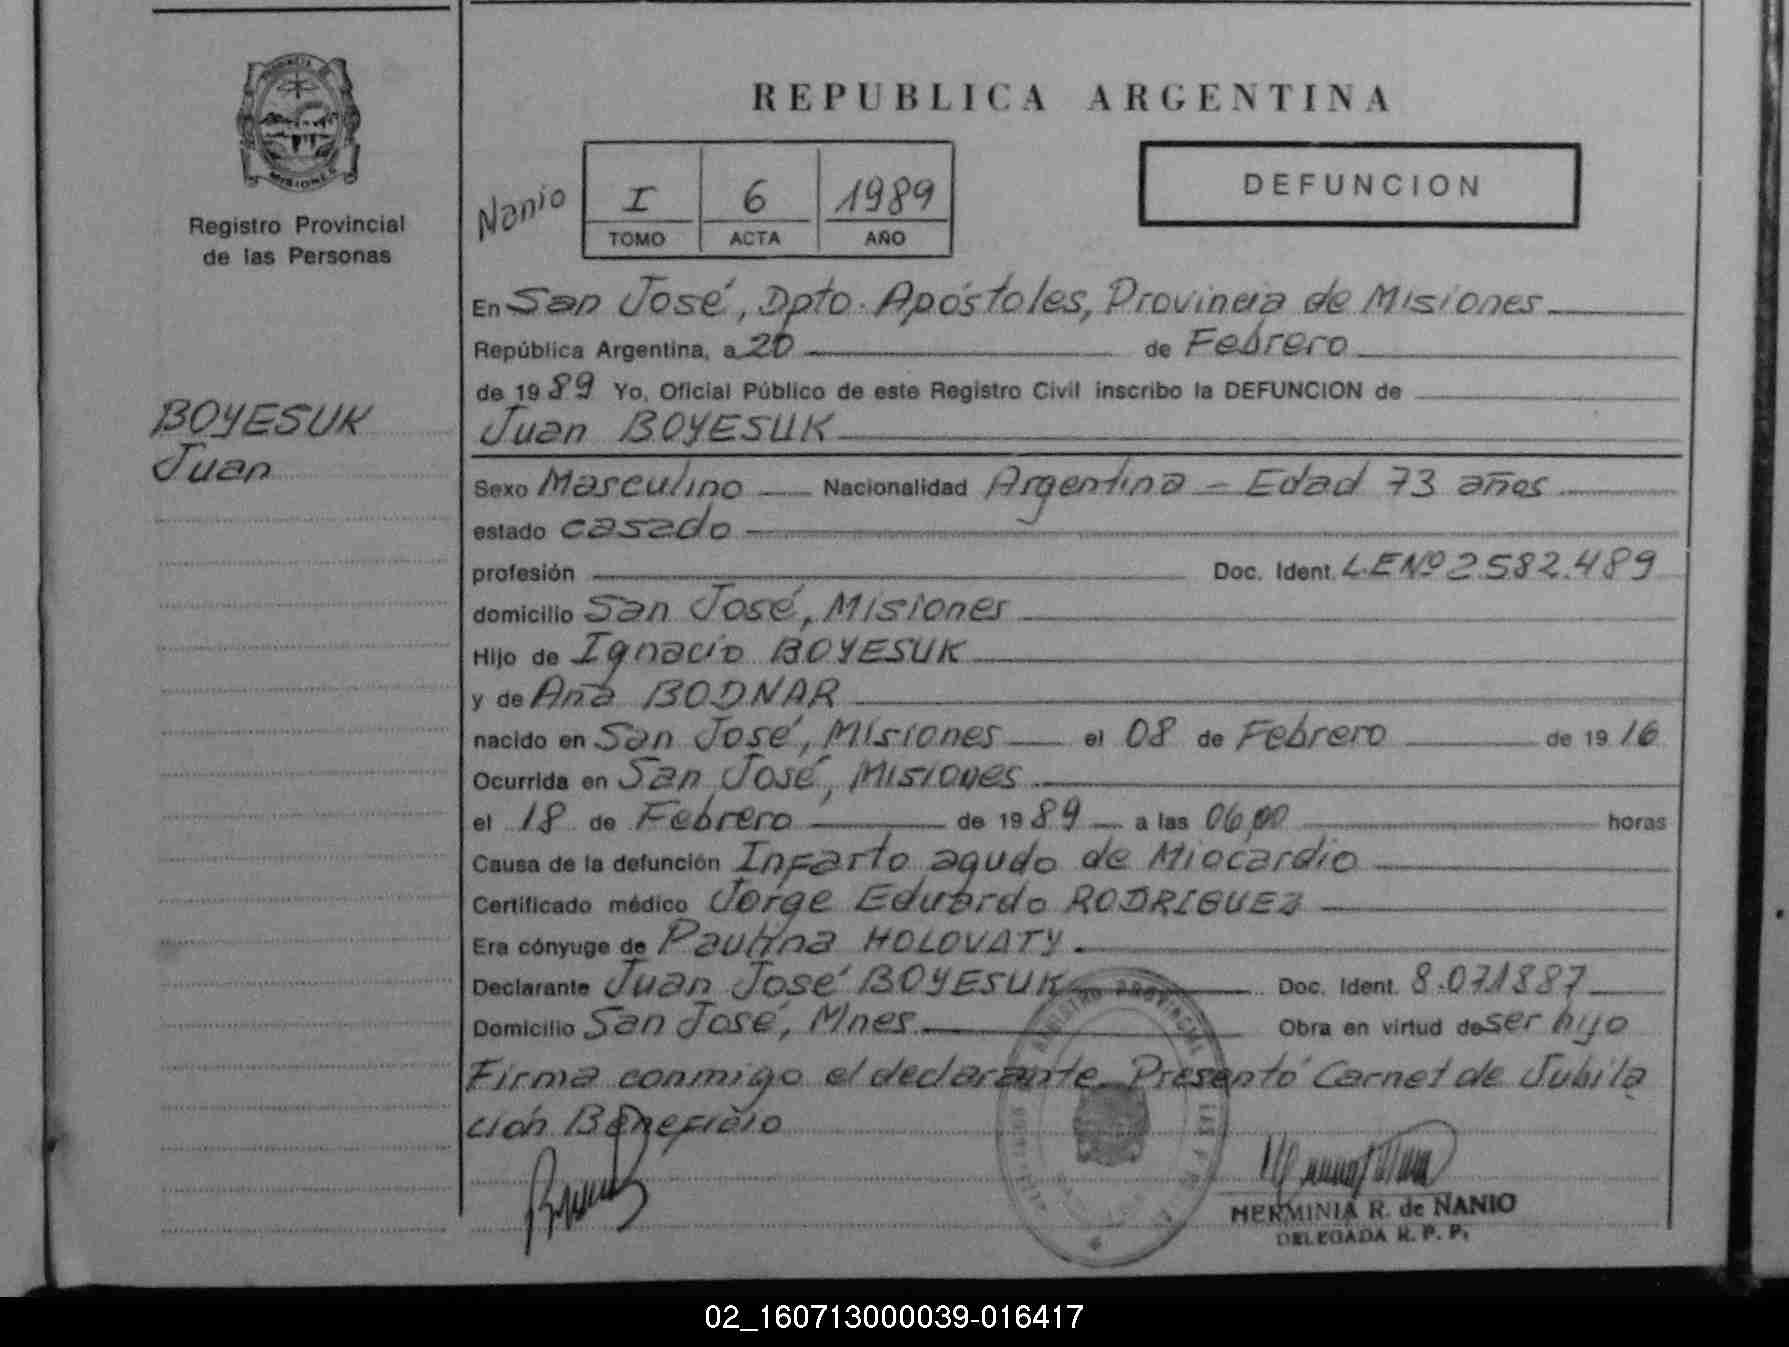 PROVINCIA DE
MISIONES
Registro Provincial
de las Personas
BOYESUK
Juan
REPUBLICA ARGENTINA
Nanio
I 6 1989
TOMO ACTA AÑO
DEFUNCION
En San José, Dpto. Apóstoles, Provincia de Misiones
República Argentina, a 20 de Febrero
de 1989 Yo, Oficial Público de este Registro Civil inscribo la DEFUNCION de
Juan BOYESUK
Sexo Masculino Nacionalidad Argentina - Edad 73 años
estado casado
profesión Doc. Ident. L.E Nº 2.582.489
domicilio San José, Misiones
Hijo de Ignacio BOYESUK
y de Ana BODNAR
nacido en San José, Misiones el 08 de Febrero de 1916
Ocurrida en San José, Misiones
el 18 de Febrero de 1989 a las 06,00 horas
Causa de la defunción Infarto agudo de Miocardio
Certificado médico Jorge Eduardo RODRIGUEZ
Era cónyuge de Paulina HOLOVATY.
Declarante Juan José BOYESUK Doc. Ident. 8.071887
Domicilio San José, Mnes. Obra en virtud de ser hijo
Firma conmigo el declarante. Presentó Carnet de Jubila
ción Beneficio
HERMINIA R. de NANIO
DELEGADA R. P. P.
02_160713000039-016417